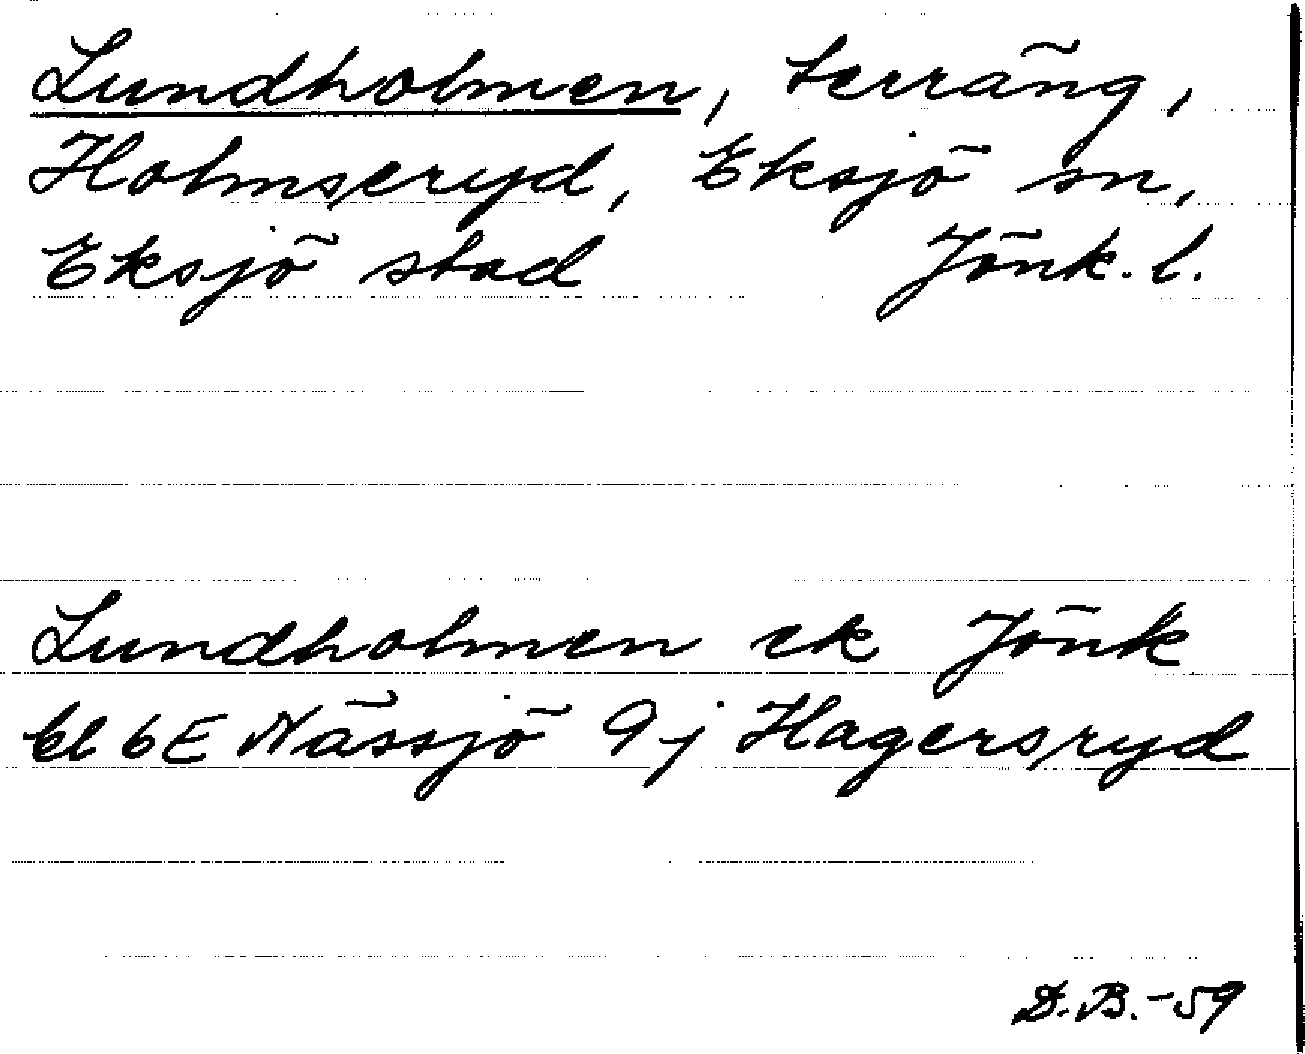 Lundholmen, terräng,
Holmseryd, Eksjö sn,
Eksjö stad Jönk. l.
Lundholmen ek Jönk
bl 6E Nässjö 9j Hagersryd
D.B.-59